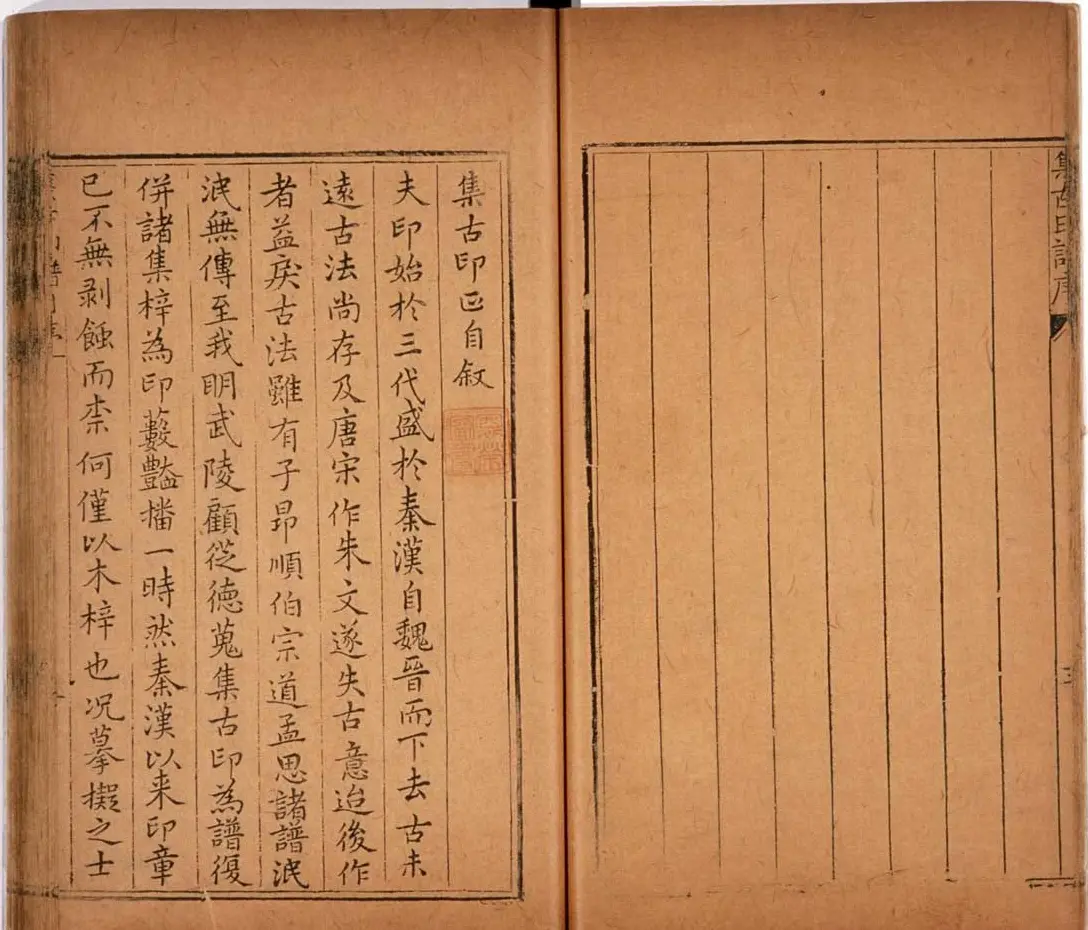 集古印譜序
集古印正自叙
夫印始於三代盛於秦漢自魏晉而下去古未
遠古法尚存及唐宋作朱文遂失古意迨後作
者益戾古法雖有子昂順伯宗道孟思諸譜泯
泯無傳至我明武陵顧從德蒐集古印為譜復
併諸集梓為印藪豔播一時然秦漢以来印章
已不無剥蝕而柰何僅以木梓也况摹擬之士